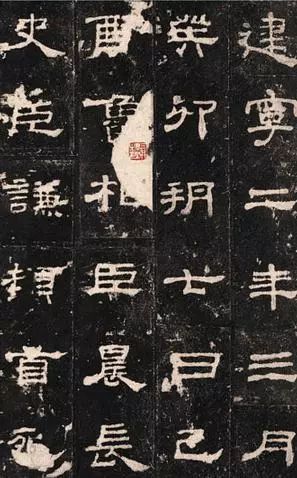 建寧二年三月
癸卯朔七日己
酉魯相臣晨長
史臣謙頓首死